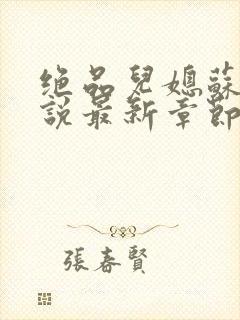 絕品兒媳蘇
說最新章節
張春賢